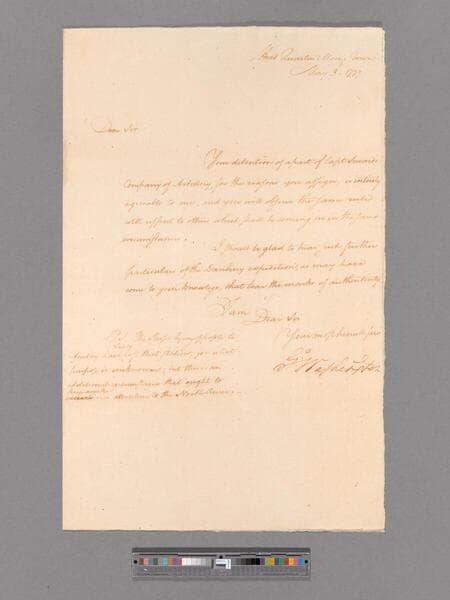 Head Quarters Morris Town
May 3. 1777
Dear Sir
Your detention of a part of Capt
Company of Artillery, for the reasons you assign, is entirely
agreeable to me, and you will observe the same rule
with respect to others which shall be coming on in the same
circumstances.
I should be glad to hear such further
particulars of the Danbury expedition, as may have
come to your knowledge, that bear the marks of authenticity
I am
Dear Sir
Your most humble serv
G. Washington
P.S. The Troops by my
that for what
purpose is unknown; but this is an
additional circumstance that ought to
attention to the North River.